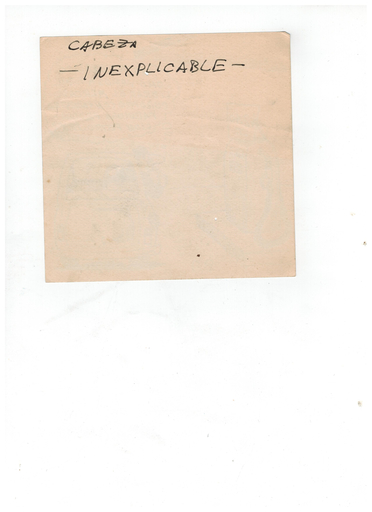 CABEZA
— INEXPLICABLE —